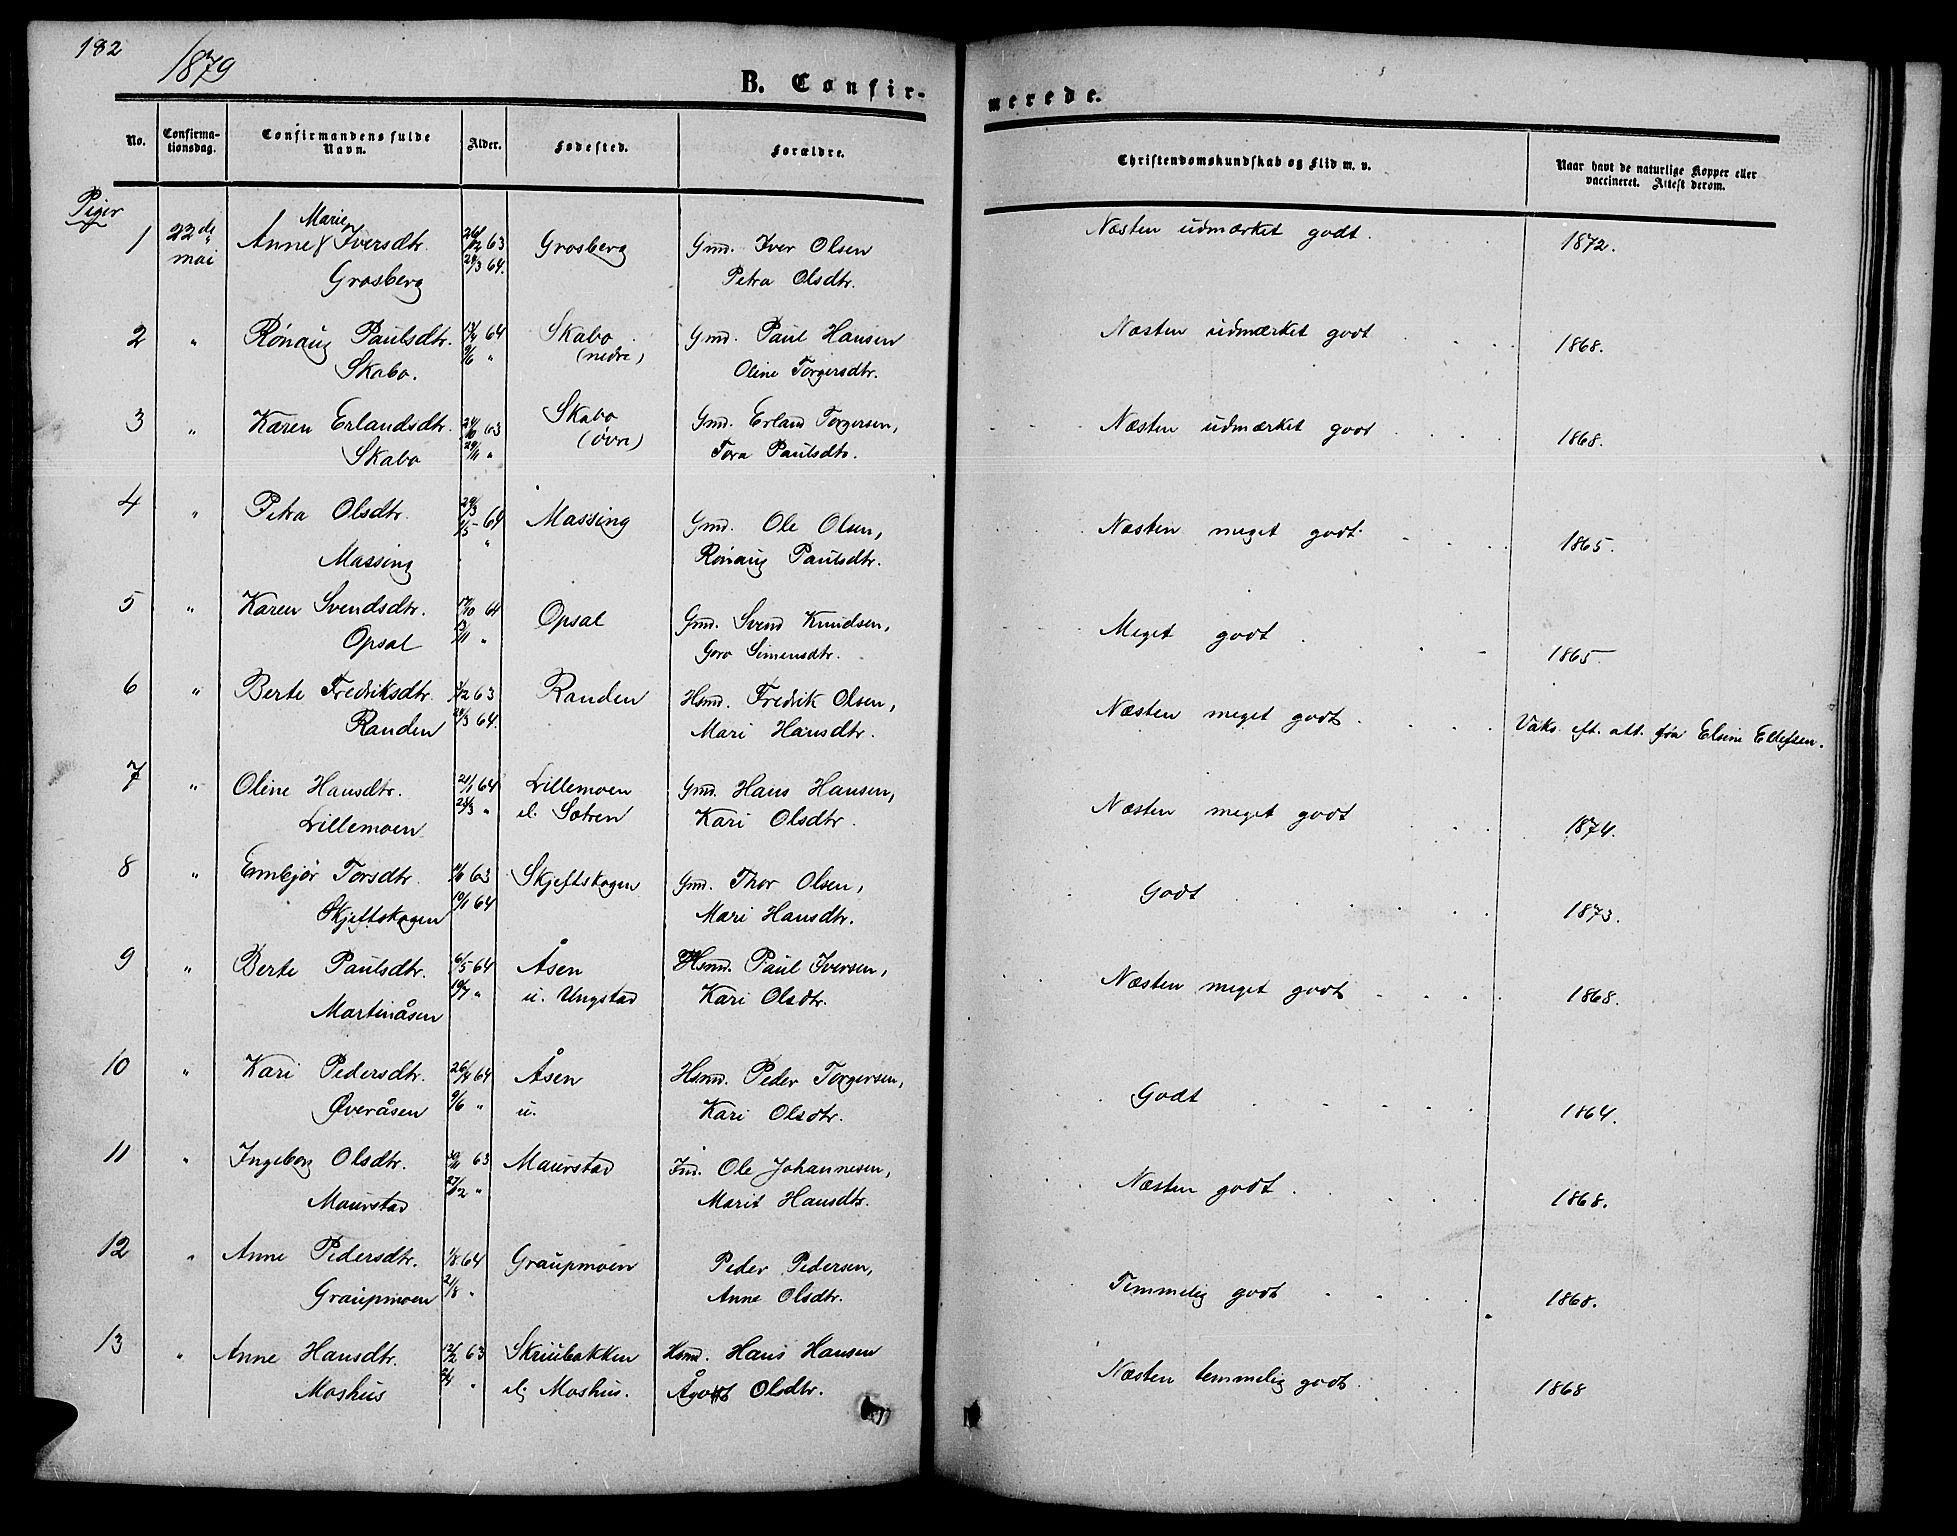 182
1879
B. Confir-
merede.
No. Confirma-tionsdag. Confirmandens fulde Navn. Alder. Fødested. Forældre. Christendomskundskab og Flid m. v. Naar havt de naturlige Kopper eller vaccineret. Attest derom.
Piger
1 22de mai Anne Marie Iversdtr. 26/12 63 Grosberg Gmd. Iver Olsen Næsten udmærket godt. 1872.
Grosberg 28/3 64. Petra Olsdtr.
2 " Rønaug Paulsdtr. 64 Skabo Gmd. Paul Hansen Næsten udmærket godt 1868.
Skabo. 9/6 " (nedre) Oline Torgersdtr.
3 " Karen Erlandsdtr. 24/10 63 Skabo Gmd. Erland Torgersen, Næsten udmærket godt 1868.
Skabo 29/11 " (øvre) Tora Paulsdtr.
4 " Petra Olsdtr. 29/3 64 Massing Gmd. Ole Olsen, Næsten meget godt 1865.
Massing /5 " Rønaug Paulsdtr.
5 " Karen Svendsdtr. 17/10 64 Opsal Gmd. Svend Knudsen, Meget godt 1865.
Opsal 13/11 " Goro Simensdtr.
6 " Berte Fredriksdtr. /12 63 Randen Hsmd. Fredrik Olsen, Næsten meget godt Vaks. eft. att. fra Elsine Ellefsen.
Randen 28/3 64. Mari Hansdtr.
7 " Oline Hansdtr. 21/1 64 Lillemoen Gmd. Hans Hansen, Næsten meget godt 1874.
Lillemoen 28/3 " el. Sætren Kari Olsdtr.
8 " Embjør Torsdtr. 63 Skjeftskogen Gmd. Thor Olsen, Godt 1873.
Skjeftskogen 10/1 64 Mari Hansdtr.
9 " Berte Paulsdtr. 6/5 64 Åsen Hsmd. Paul Iversen, Næsten meget godt 1868.
Martinåsen 19/7 " u. Ungstad Kari Olsdtr.
10 " Kari Pedersdtr. 26/4 64 Åsen Hsmd. Peder Torgersen, Godt 1864.
Øveråsen 9/6 " u. Kari Olsdtr.
11 " Ingeborg Olsdtr. 30/11 63 Maurstad Ind. Ole Johannesen, Næsten godt 1868.
Maurstad 27/12 " Marit Hansdtr.
12 " Anne Pedersdtr. 1/8 64 Graupmoen Peder Pedersen, Temmelig godt 1868.
Graupmoen 21/8 " Anne Olsdtr.
13 " Anne Hansdtr. 12/2 63 Skriubakken Hsmd. Hans Hansen Næsten temmelig godt 1868
Moshus " el. Moshus. Ågot Olsdtr.